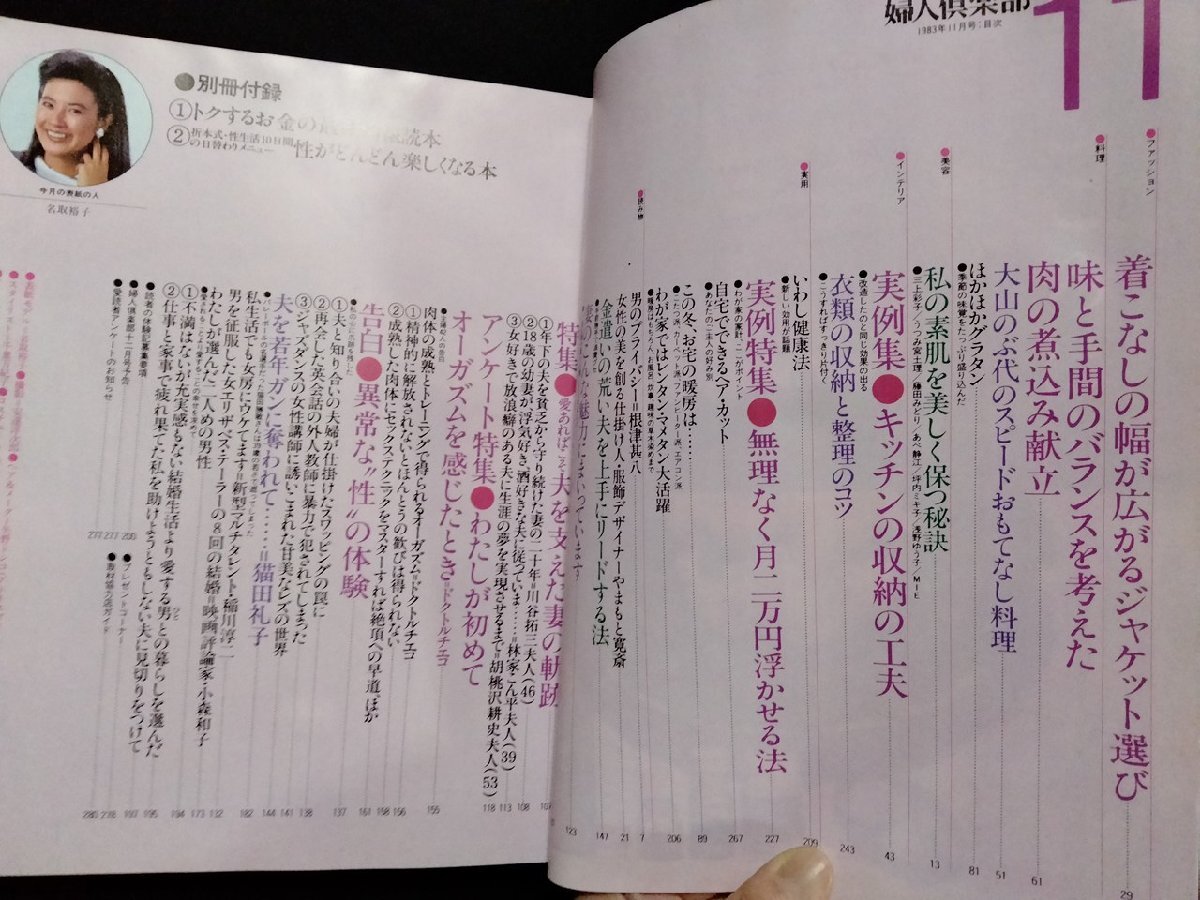 婦人倶楽部
1983年11月号:目次
11
●ファッション
着こなしの幅が広がるジャケット選び
29
●料理
味と手間のバランスを考えた
肉の煮込み献立
61
大山のぶ代のスピードおもてなし料理
51
●季節の味覚をたっぷり盛り込んだ
ほかほかグラタン
81
●美容
私の素肌を美しく保つ秘訣
●三土彩子/うつみ宮土理/藤田みどり/あべ静江/坪内ミキ子/浅野ゆう子/MIE
13
●インテリア
実例集●キッチンの収納の工夫
●改造したのと同じ効果の出る
43
衣類の収納と整理のコツ
●こうすればすっきり片付く
243
●実用
いわし健康法
●新しい効用が話題
209
実例特集●無理なく月二万円浮かせる法
●わが家の家計、ここがポイント
227
自宅でできるヘア・カット
●あなたのご主人の好み別
267
この冬、お宅の暖房は……
●こたつ派、カーペット派、ファンヒーター派、エアコン派
89
わが家ではレンタン・マメタン大活躍
●暖房はもちろん、お風呂、炊事、趣味の草木染めまで
206
●読み物
男のプライバシー=根津甚八
7
女性の美を創る仕掛け人・服飾デザイナーやまもと寛斎
21
金遣いの荒い夫を上手にリードする法
147
123
特集●愛あればこそ夫を支えた妻の軌跡
①年下の夫を貧乏から守り続けた妻の二十年=川谷拓三夫人(46)
②18歳の幼妻が浮気好き、酒好きな夫に従っていま……=林家こん平夫人(39)
108
③女好きで放浪癖のある夫に生涯の夢を実現させるまで=胡桃沢耕史夫人(53)
113
アンケート特集●わたしが初めて
オーガズムを感じたとき=ドクトルチエコ
118
●主婦48人の告白
肉体の成熟とトレーニングで得られるオーガズム=ドクトルチエコ
155
①精神的に解放されないとほんとうの歓びは得られない
156
②成熟した肉体にセックステクニックをマスターすれば絶頂への早道、ほか
158
告白●異常な“性”の体験
161
①夫と知り合いの夫婦が仕掛けたスワッピングの罠に
137
②再会した英会話の外人教師に暴力で犯されてしまった
138
③ジャズダンスの女性講師に誘いこまれた甘美なレズの世界
141
夫を若年ガンに奪われて……=猫田礼子
144
私生活でも女房にウケてます=新型マルチタレント・稲川淳二
182
男を征服した女エリザベス・テーラーの8回の結婚=映画評論家・小森和子
132
わたしが選んだ二人めの男性
173
①不満はないが充実感もない結婚生活より愛する男との暮らしを選んだ
194
②仕事と家事で疲れ果てた私を助けようともしない夫に見切りをつけて
195
●読者の体験記募集要項
●婦人倶楽部十二月号予告
●愛読者アンケートのお知らせ
●プレゼントコーナー
●別冊付録
②折本式・性生活10日間の日替わりメニュー 性がどんどん楽しくなる本
今月の表紙の人
名取裕子